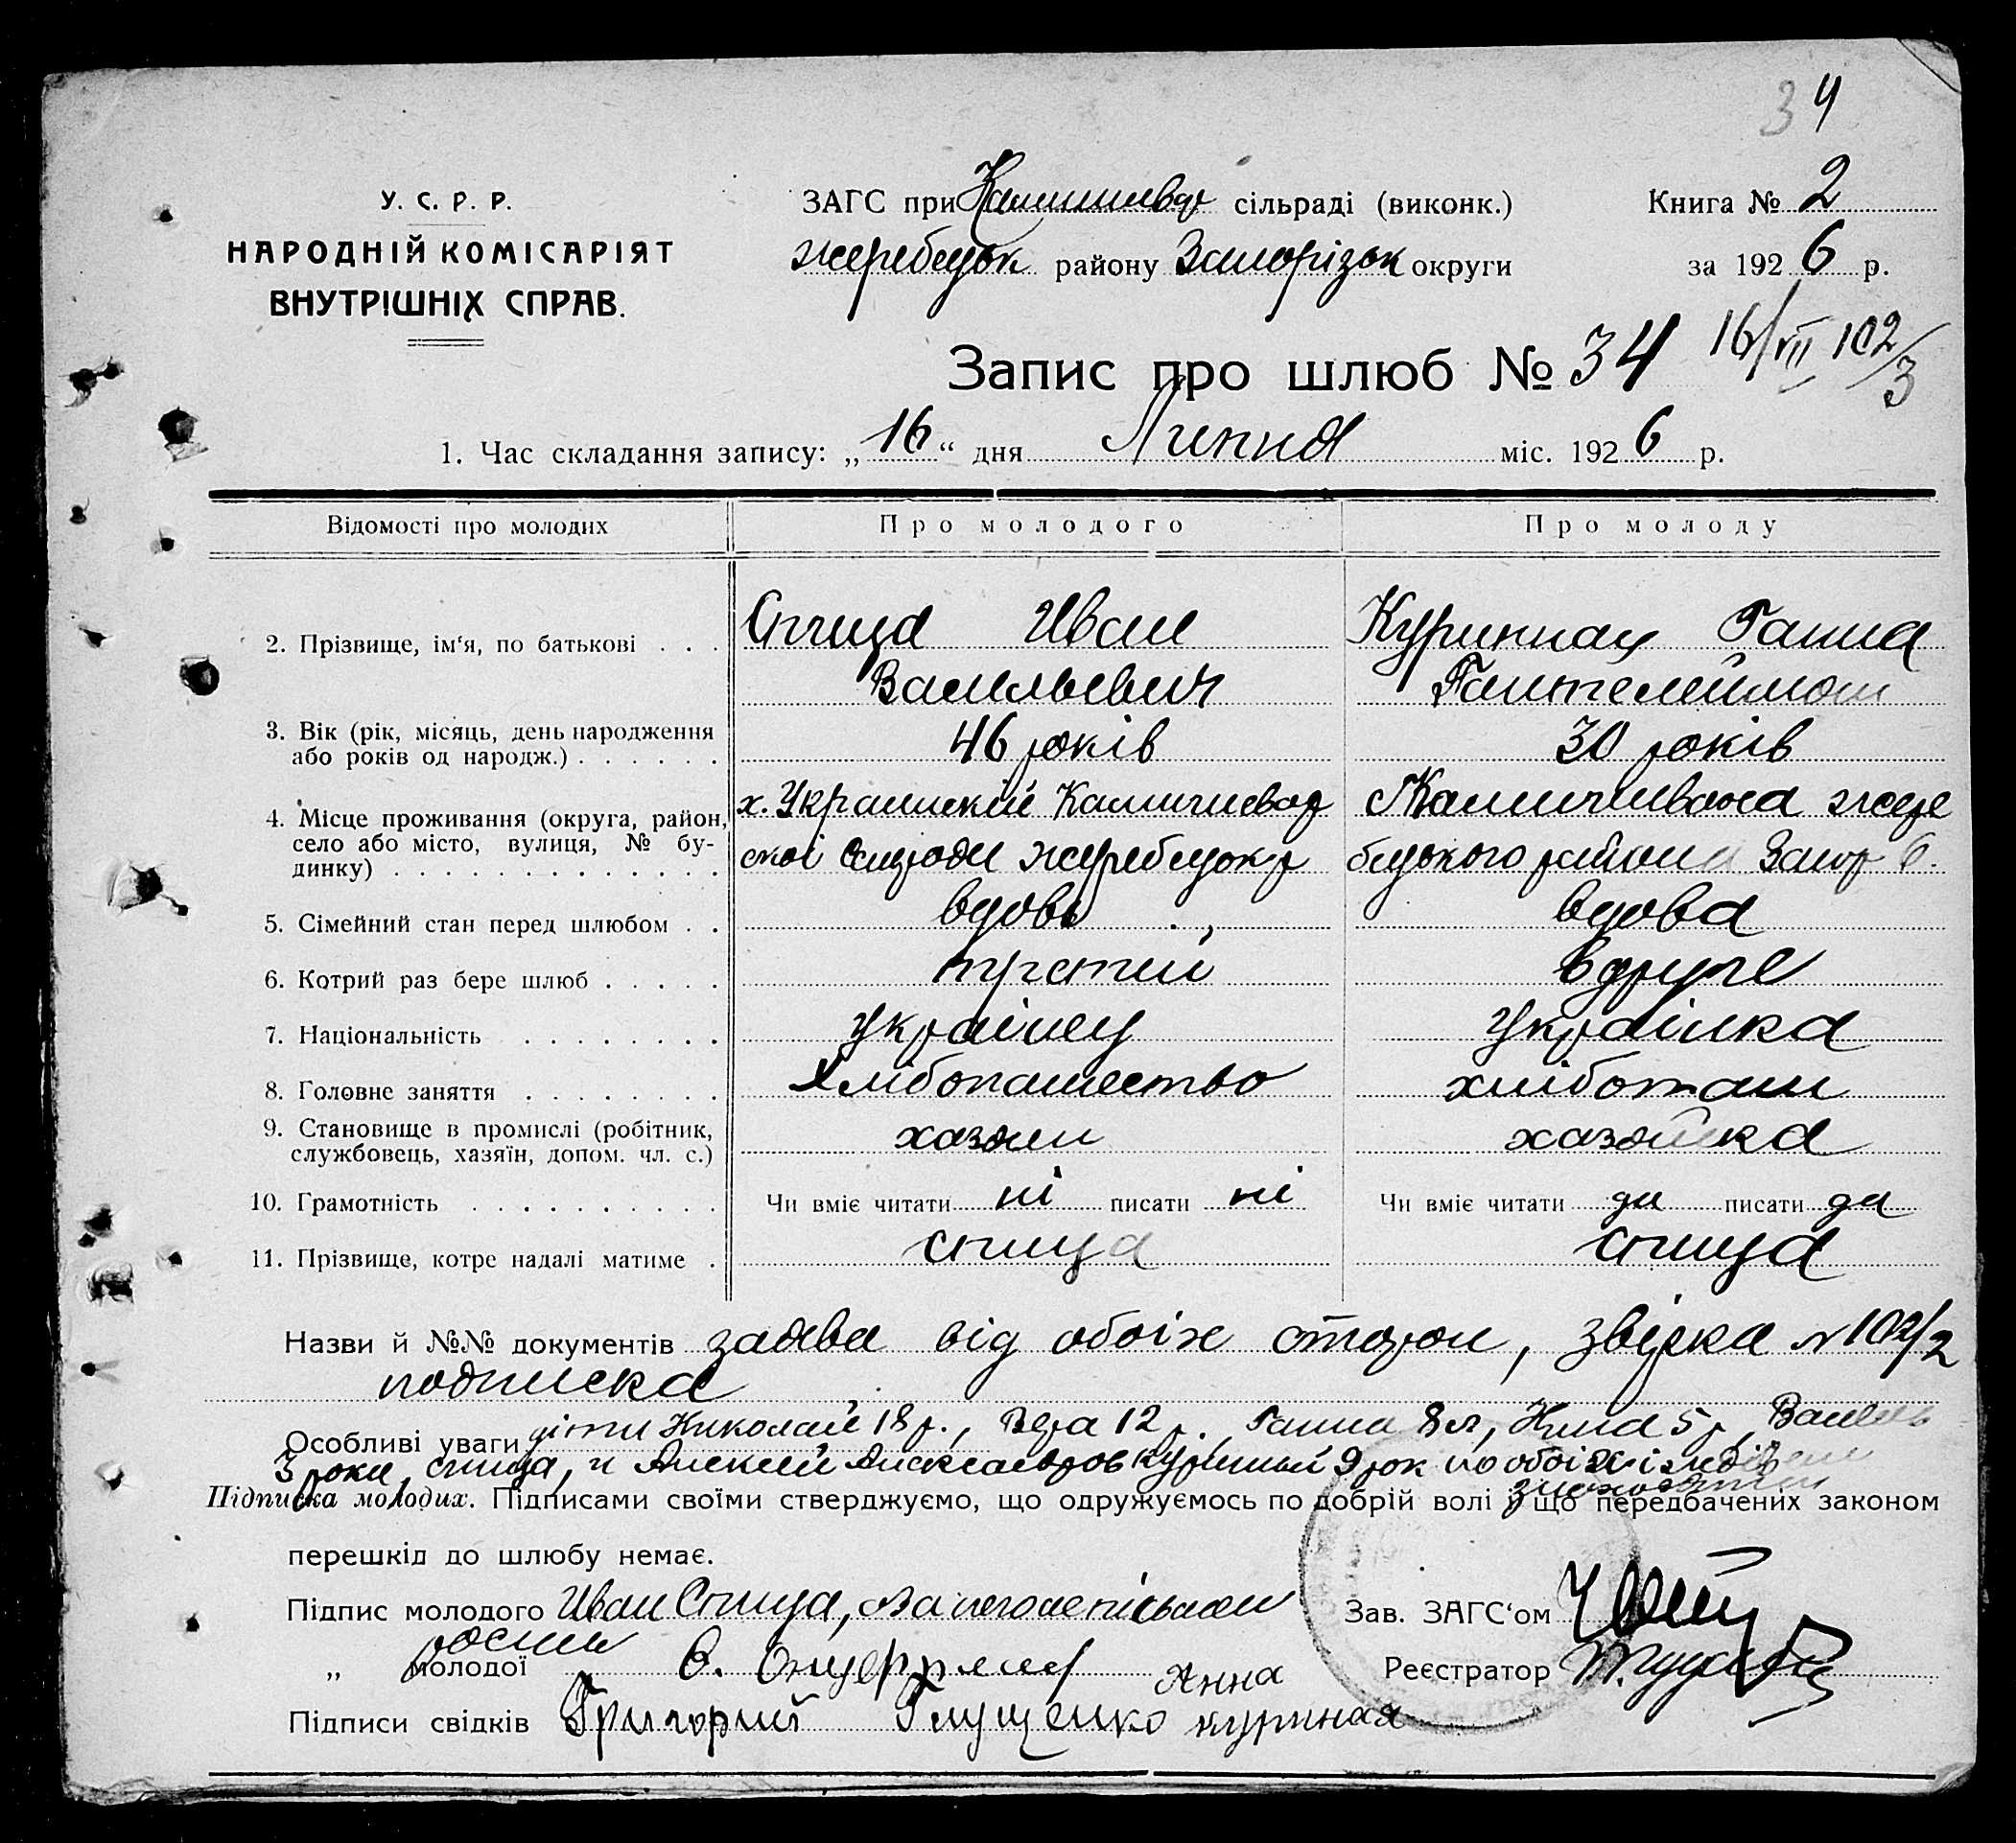 34
У. С. Р. Р.
НАРОДНІЙ КОМІСАРІЯТ
ВНУТРІШНІХ СПРАВ.
ЗАГС при сільраді (виконк.)
жеребецьк району Запорізьк округи
Книга № 2
за 1926 р.
Запис про шлюб № 34 16/VII 102/3
1. Час складання запису: „16“ дня Липня міс. 1926 р.
Відомості про молодих Про молодого Про молоду
2. Прізвище, ім‘я, по батькові . . . Спица Иван Куринная Ганна
Васильевич Пантелеймон
3. Вік (рік, місяць, день народження
або років од народж.) . . . . . . 46 років 30 років
4. Місце проживання (округа, район, х. Украинский Камишевах Камишеваха жере
село або місто, вулиця, № бу- ской жеребецьк р бецького района Запор
динку) . . . . . . . . . . . . .
5. Сімейний стан перед шлюбом . . вдовь вдова
6. Котрий раз бере шлюб . . . . . третий вдруге
7. Національність . . . . . . . . українец українка
8. Головне заняття . . . . . . . . хлібопашество хлібопаш
9. Становище в промислі (робітник,
службовець, хазяїн, допом. чл. с.) хазяин хазяйка
10. Грамотність . . . . . . . . . . Чи вміє читати ні писати ні Чи вміє читати да писати да
11. Прізвище, котре надалі матиме . спица спица
Назви й №№ документів заява від обоіх сторон, звірка № 102/2
подписка
Особливі уваги діти Николай 18 р., Вера 12 р. Ганна 8 л, Нина 5 р, Василь
3 роки, спица, и Алексий Александров Куринный 9 рок
Підписка молодих. Підписами своїми стверджуємо, що одружуємось по добрій волі й що передбачених законом
перешкід до шлюбу немає.
Підпис молодого Иван Спица, за негоненісьмен
„ молодої
Анна
Підписи свідків Григорий Глущенко куриная
Зав. ЗАГС‘ом
Реєстратор